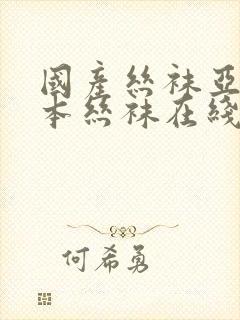 國產絲袜亞
本絲袜在綫
何希勇